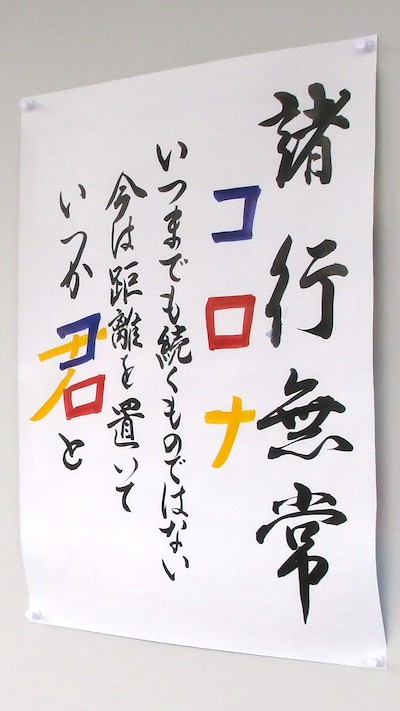 諸行無常
コロナ
いつまでも続くものではない
今は距離を置いて
いつか君と